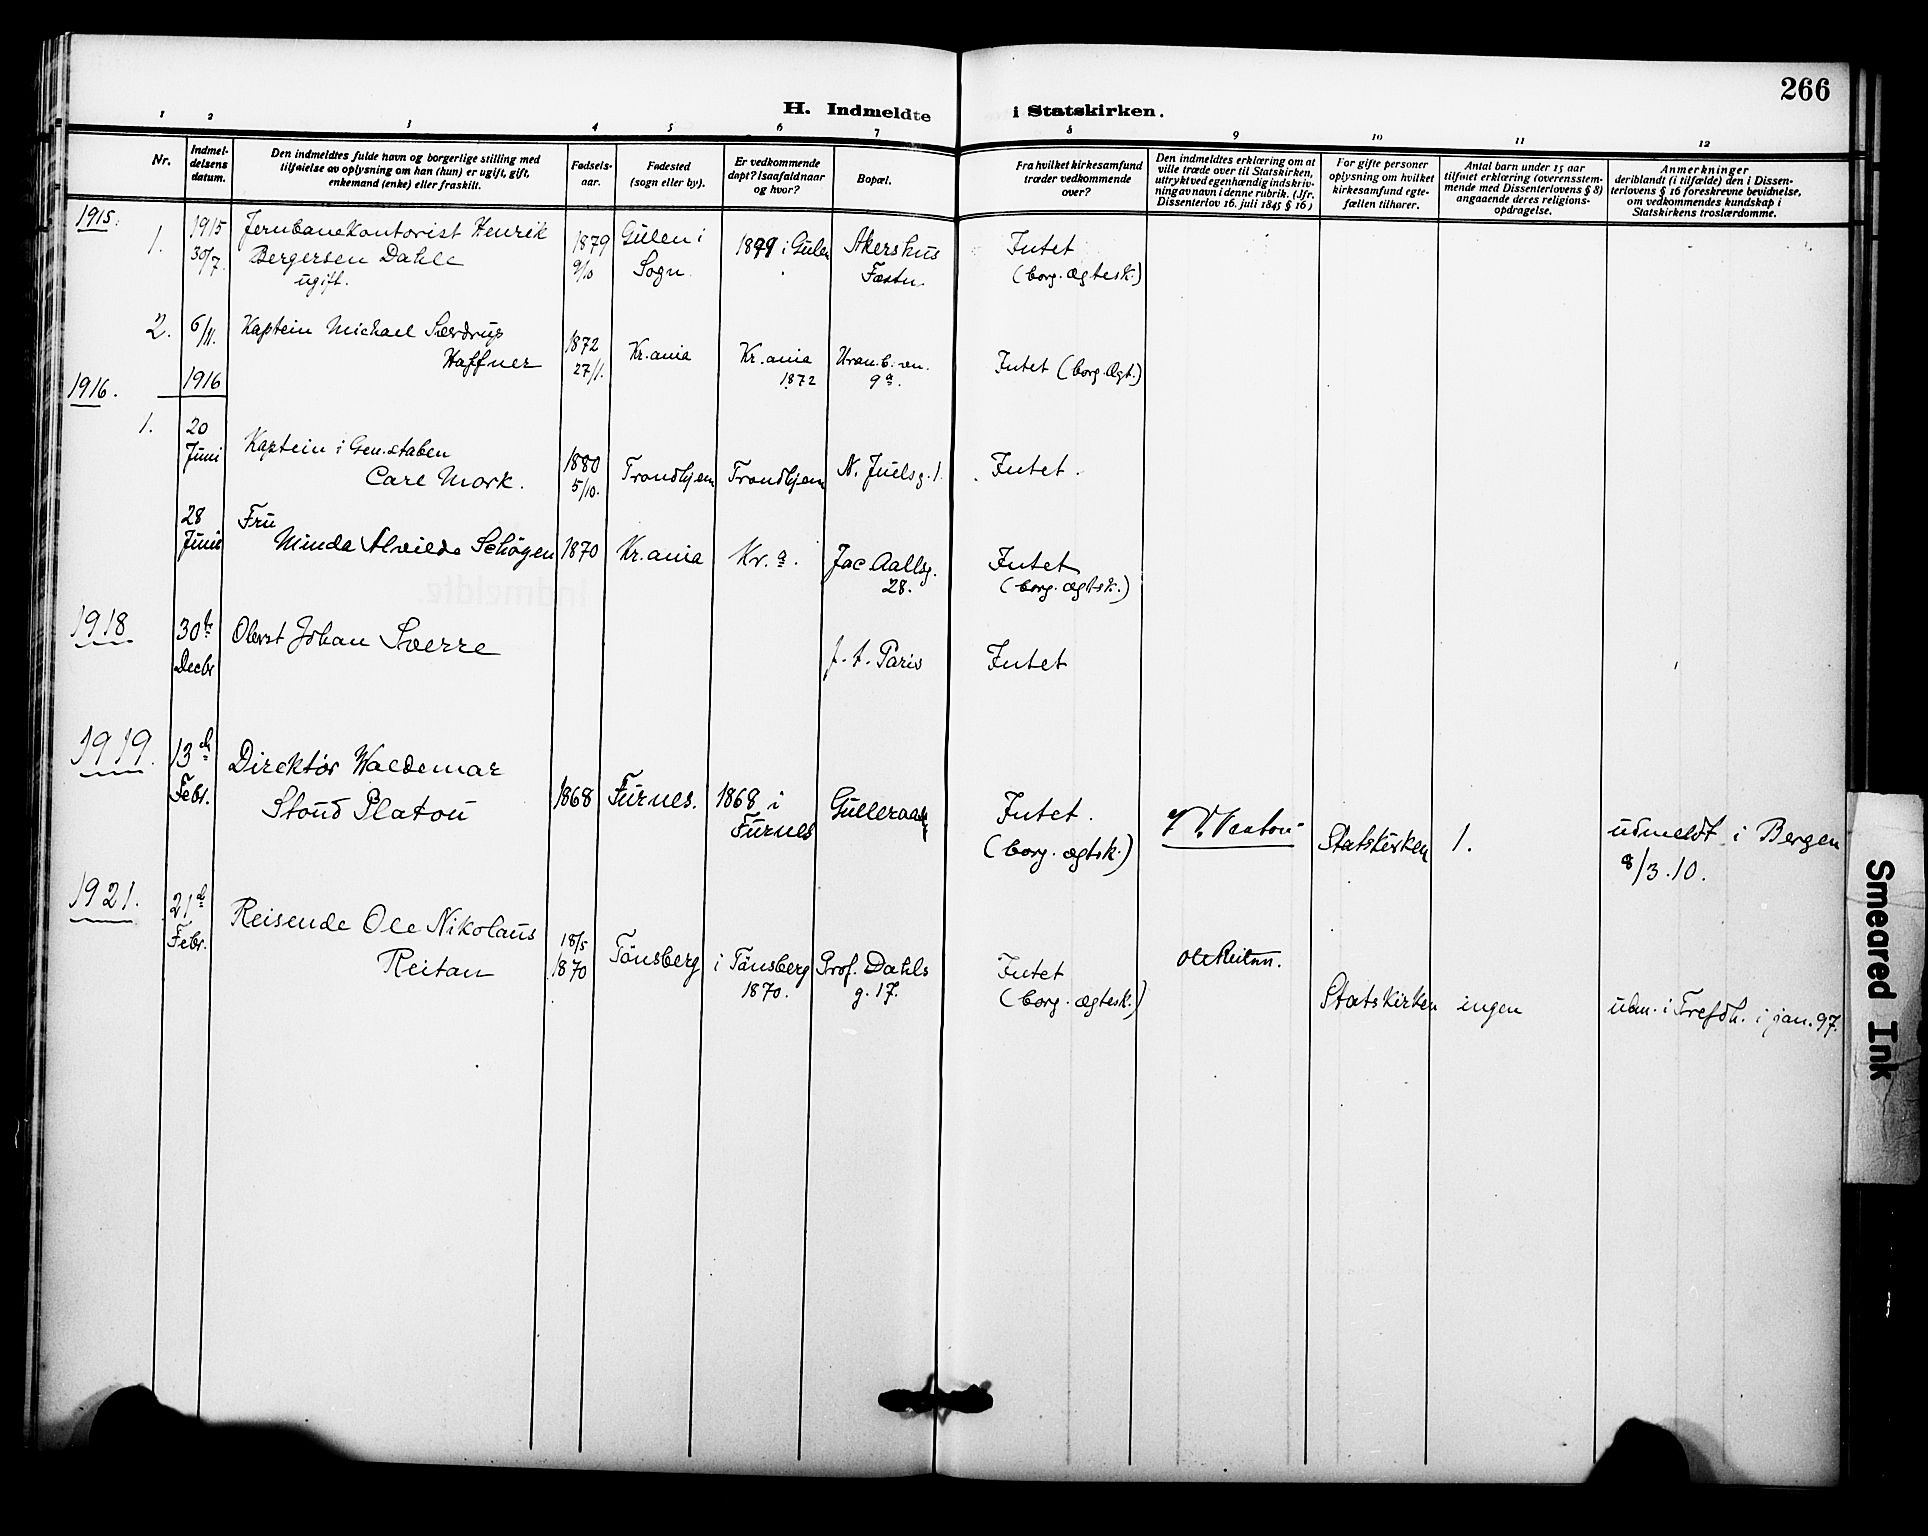 266
H. Indmeldte i Statskirken.
1 2 3 4 5 6 7 8 9 10 11 12
Nr.
Indmel-
delsens
datum.
Den indmeldtes fulde navn og borgerlige stilling med
tilføielse av oplysning om han (hun) er ugift, gift,
enkemand (enke) eller fraskilt.
Fødsels-
aar.
Fødested
(sogn eller by).
Er vedkommende
døpt? Isaafald naar
og hvor?
Bopæl.
Fra hvilket kirkesamfund
træder vedkommende
over?
Den indmeldtes erklæring om at
ville træde over til Statskirken,
uttrykt ved egenhændig indskriv-
ning av navn i denne rubrik. (Jfr.
Dissenterlov 16. juli 1845 § 16)
For gifte personer
oplysning om hvilket
kirkesamfund egte-
fællen tilhører.
Antal barn under 15 aar
tilføiet erklæring (overensstem-
mende med Dissenterlovens § 8)
angaaende deres religions-
opdragelse.
Anmerkninger
deriblandt (i tilfælde) den i Dissen-
terlovens § 16 foreskrevne bevidnelse,
om vedkommendes kundskap i
Statskirkens troslærdomme.
1915:
1.
1915
30/7.
Jernbanekontorist Henrik
Bergersen Dahle
ugift.
1879
9/10
Gulen i
Sogn
1879 i Gulen
Akershus
Fæstn.
Intet
(borg. ægtesk.)
2.
6/11.
Kaptein Michael Sverdrup
Haffner
1872
27/1.
Kr.ania
Kr.ania
1872
Uran.b.vn.
9a.
Intet (borg. ægt.)
1916.
1916
1.
20
Juni
Kaptein i Gen.staben
Carl Mork.
1880
5/10.
Trondhjem
Trondhjem
N. Juelsg. 1
Intet.
28
Juni
Fru
Minda Alvilde Schøgen
1870
Kr.ania
Kr.a.
Jac Aallsg.
28.
Intet
(borg. ægtsk.)
1918
30te
Decbr
Oberst Johan Sverre
f. t. Paris
Intet
1919.
13de
Febr.
Direktør Waldemar
Stoud Platou
1868
Furnes.
1868 i
Furnes
Gulleraas
Intet.
(borg. ægtsk.)
Platou
Statskirken
1.
udmeldt i Bergen
8/3.10.
1921.
21de
Febr.
Reisende Ole Nikolaus
Reitan
18/5
1870
Tønsberg
i Tønsberg
1870.
Prof. Dahls
g. 17.
Intet
(borg. ægtesk.)
Ole Reitan.
Statskirken
ingen
udm. i Trefdh. i jan. 97.
Smeared Ink